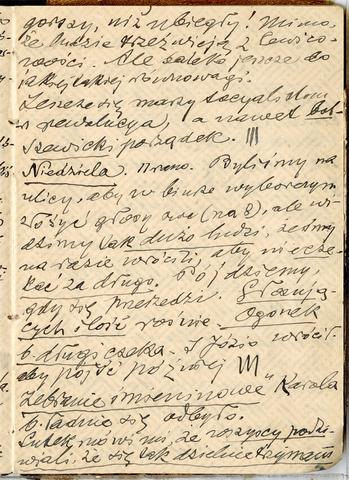 gorszy, niż ubiegły! Mimo,
że ludzie trzeźwieją z lewico-
wości. Ale daleko jeszcze do
jakiej takiej równowagi.
Jeszcze się marzy socyalistom
rewolucya, a nawet bol-
szewicki porządek.
Niedziela. Rano. Byliśmy na
ulicy, aby w biurze wyborczym
złożyć głosy (na 8), ale wi-
dzimy tak dużo ludzi, żeśmy
na razie wrócili, aby nie cze-
kać za długo. Pójdziemy,
gdy się przerzedzi. Głosują-
cych ilość rośnie. Ogonek
b. długi czeka. I Józio wrócił.
aby pójść później
Zebranie imieninowe Karola
b. ładnie się odbyło.
Lutek mówi mi, że wszyscy podzi-
wiali, że się tak dzielnie trzymam